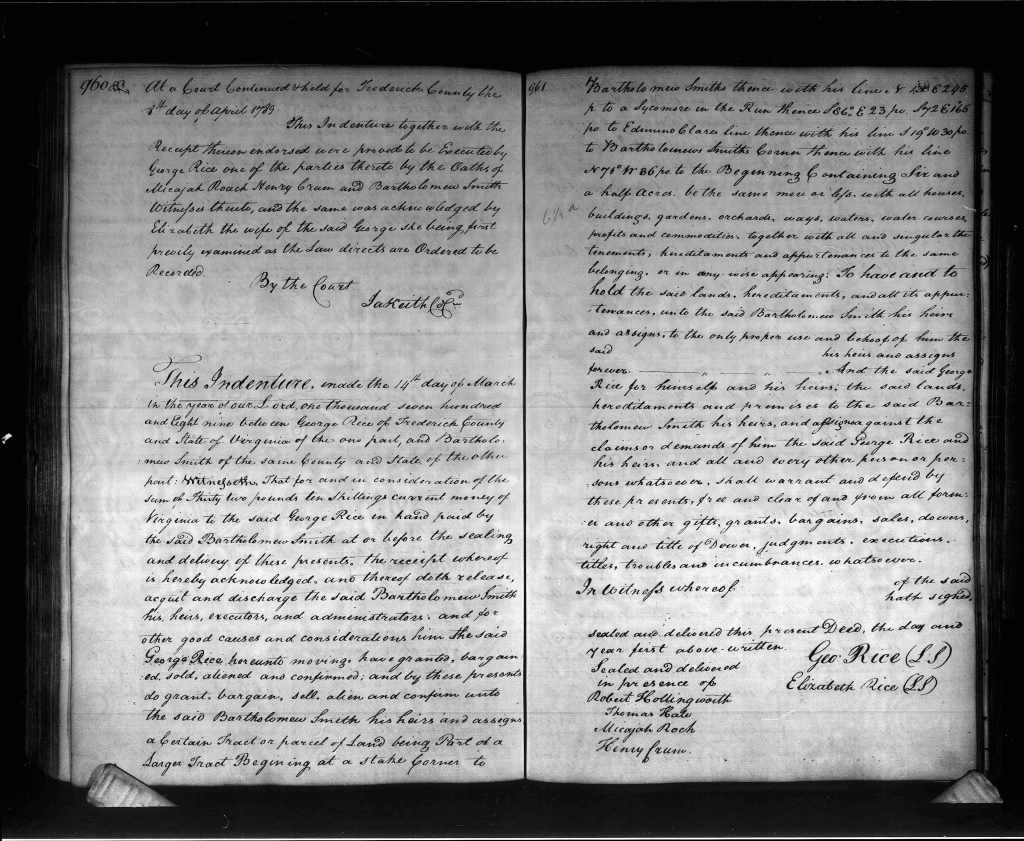 960
At a Court Continued & held for Frederick County the
8th day of April 1789
This Indenture together with the
Receipt thereon endorsed were proved to be Executed by
George Rice one of the parties thereto by the Oaths of
Micajah Roach Henry Crum and Bartholomew Smith
Witnesses thereto, and the same was acknowledged by
Elizabeth the wife of the said George she being first
previly examined as the Law directs are Ordered to be
Recorded.
By the Court
Ja Keith
This Indenture, made the 14th day of March
in the year of our Lord, one thousand seven hundred
and Eight nine between George Rice of Frederick County
and State of Verginia of the one part, and Bartholo-
mew Smith of the same County and State of the other
part: Witnesseth, That for and in consideration of the
sum of Thirty two pounds ten Shillings current money of
Virginia to the said George Rice in hand paid by
the said Bartholomew Smith at or before the sealing
and delivery of these presents, the receipt whereof
is hereby acknowledged, and thereof doth release,
acquit and discharge the said Bartholomew Smith
his, heirs, executors, and administrators: and for
other good causes and considerations him the said
George Rice, hereunto moving, have granted, bargain
ed, sold, aliened and confirmed; and by these presents
do grant, bargain, sell, alien and confirm unto
the said Bartholomew Smith his heirs and assigns
a Certain Tract or parcel of Land being Part of a
Larger Tract Begining at a Stake Corner to
961
Bartholomew Smiths thence with his line N E 245
p. to a Sycomore in the Run thence S 86° E 23 po. S 72 E 165
po to Edmund Clares line thence with his line S 19° W 30 po
to Bartholomews Smiths Corner thence with his line
N 75° W 86 po to the Beginning Containing Six and
a half Acres. be the same more or less. with all houses,
6½ a
buildings, gardens, orchards, ways, waters, water courses,
profits and commodities, together with all and singular the
tenements, hereditaments and appurtenances to the same
belonging, or in any wise appearing: To have and to
hold the said lands, hereditaments, and all its appur-
-tenances, unto the said Bartholomew Smith his heirs
and assigns, to the only proper use and behoof of him the
said his heirs and assigns
forever. And the said George
Rice for himself and his heirs, the said lands,
hereditaments and premises to the said Bar-
tholomew Smith his heirs, and assigns against the
claims or demands of him the said George Rice and
his heirs, and all and every other person or per-
sons whatsoever, shall warrant and defend by
these presents, free and clear of and from all form-
er and other gifts, grants, bargains, sales, dowers,
right and title of Dower, judgments, executions,
titles, troubles and incumbrances. whatsoever.
In Witness whereof of the said
hath signed,
sealed and delivered this present Deed, the day and
year first above-written.
Sealed and delivered
in presence of
Geo. Rice (LS)
Elizabeth Rice (LS)
Robert Hollingworth
Thomas Hale
Micajah Roch
Henry Crum.